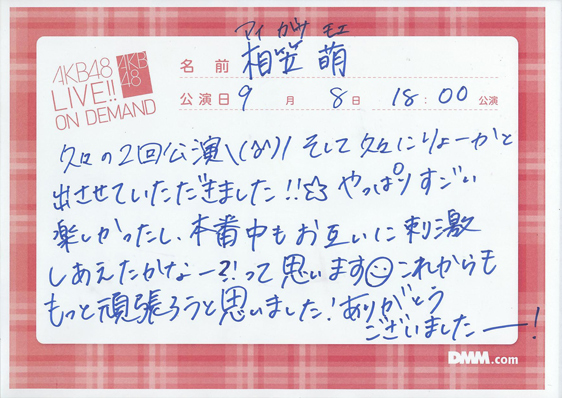 AKB48
LIVE!!
ON DEMAND
AKB
48
アイ がさ モエ
名前 相笠 萌
公演日 9 月 8 日 18:00 公演
久々の2回公演\(^^)/ そして久々にりょーかと
出させていただきました!!☆ やっぱりすごい
楽しかったし、本番中もお互いに刺激
しあえたかなー?!って思います☺これからも
もっと頑張ろうと思いました!ありがとう
ございましたー!
DMM.com